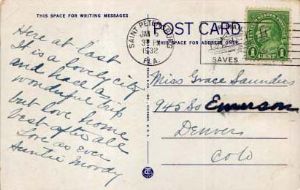 THIS SPACE FOR WRITING MESSAGES
POST CARD
THIS SPACE FOR ADDRESS ONLY
SAINT PETERSBURG
JAN
3
1932
FLA.
SAVES
1 CENT 1
Here at last
It is a lovely city
and have had
wonderful trip
but love home
best after all
Love as ever
Auntie Moody
Miss Grace Saunders
945 So Emerson
Denver
Colo